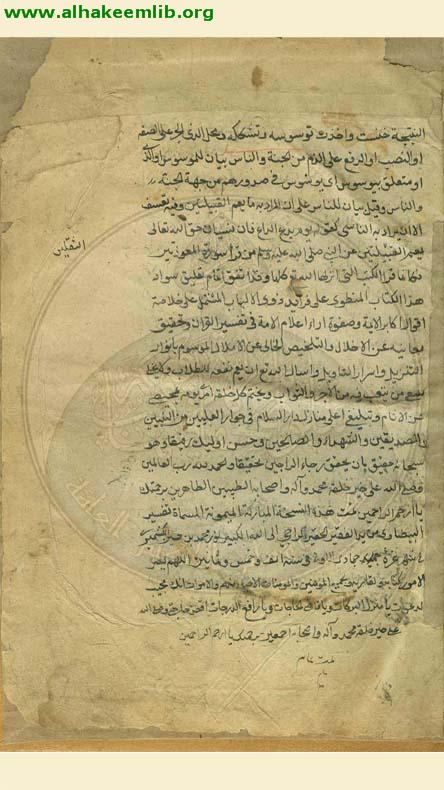 www.alhakeemlib.org
النتيجة خنست واخذت توسوسه وتشككه ومحل الذي الجر على الصفه
او النصب او الرفع على الذم من الجنة والناس بيان للوسواس او الذى
او متعلق بيوسوس اى يوسوس فى صدورهم من جهة الجنة
والناس وقيل بيان للناس على ان المراد به ما يعم القبيلين وفيه تعسف
الا ان يراد به الناسى كقوله يوم يدع الداع فان نسيان حق الله تعالى
يعم
الثقلين
عن النبى صلى الله عليه وسلم من قرأ سورة المعوذتين
فكانما قرأ الكتب التى انزلها الله كلها وقد اتفق اتمام تعليق سواد
هذا الكتاب المنطوى على فرائد ذوى الالباب المشتمل على خلاصة
اقوال اكابر الائمة وصفوة اراء اعلام الامة فى تفسير القران وتحقيق
معانيه عن الاخلال والتلخيص الخالى عن الاملال الموسوم بانوار
التنزيل واسرار التاويل واسال الله تع ان يعم نفعه للطلاب ولا
من الاجر والثواب
عن الاثام وتبليغى اعلى منازل دار السلام فى جوار العليين من النبيين
والصديقين والشهداء والصالحين وحسن اوليك رفيقا وهو
سبحانه حقيق بان يحقق رجاء الراجين تحقيقا والحمد لله رب العالمين
وصلى الله على خير خلقه محمد وآله واصحابه الطيبين الطاهرين برحمتك
يا ارحم الراحمين تمت هذه النسخة المباركة الميمونة المسماة تفسير
البيضاوى من يد الفقير الحقير الراجى الى الله
جمادى سنة الف وخمس وثمانين اللهم
ولجميع المؤمنين والمؤمنات الاحياء منهم والاموات انك مجيب
الدعوات يا منزل البركات ويا قاضى الحاجات ويا رافع الدرجات وصلى الله
على خير خلقه محمد وآله واصحابه اجمعين برحمتك يا ارحم الراحمين
تمت تمام